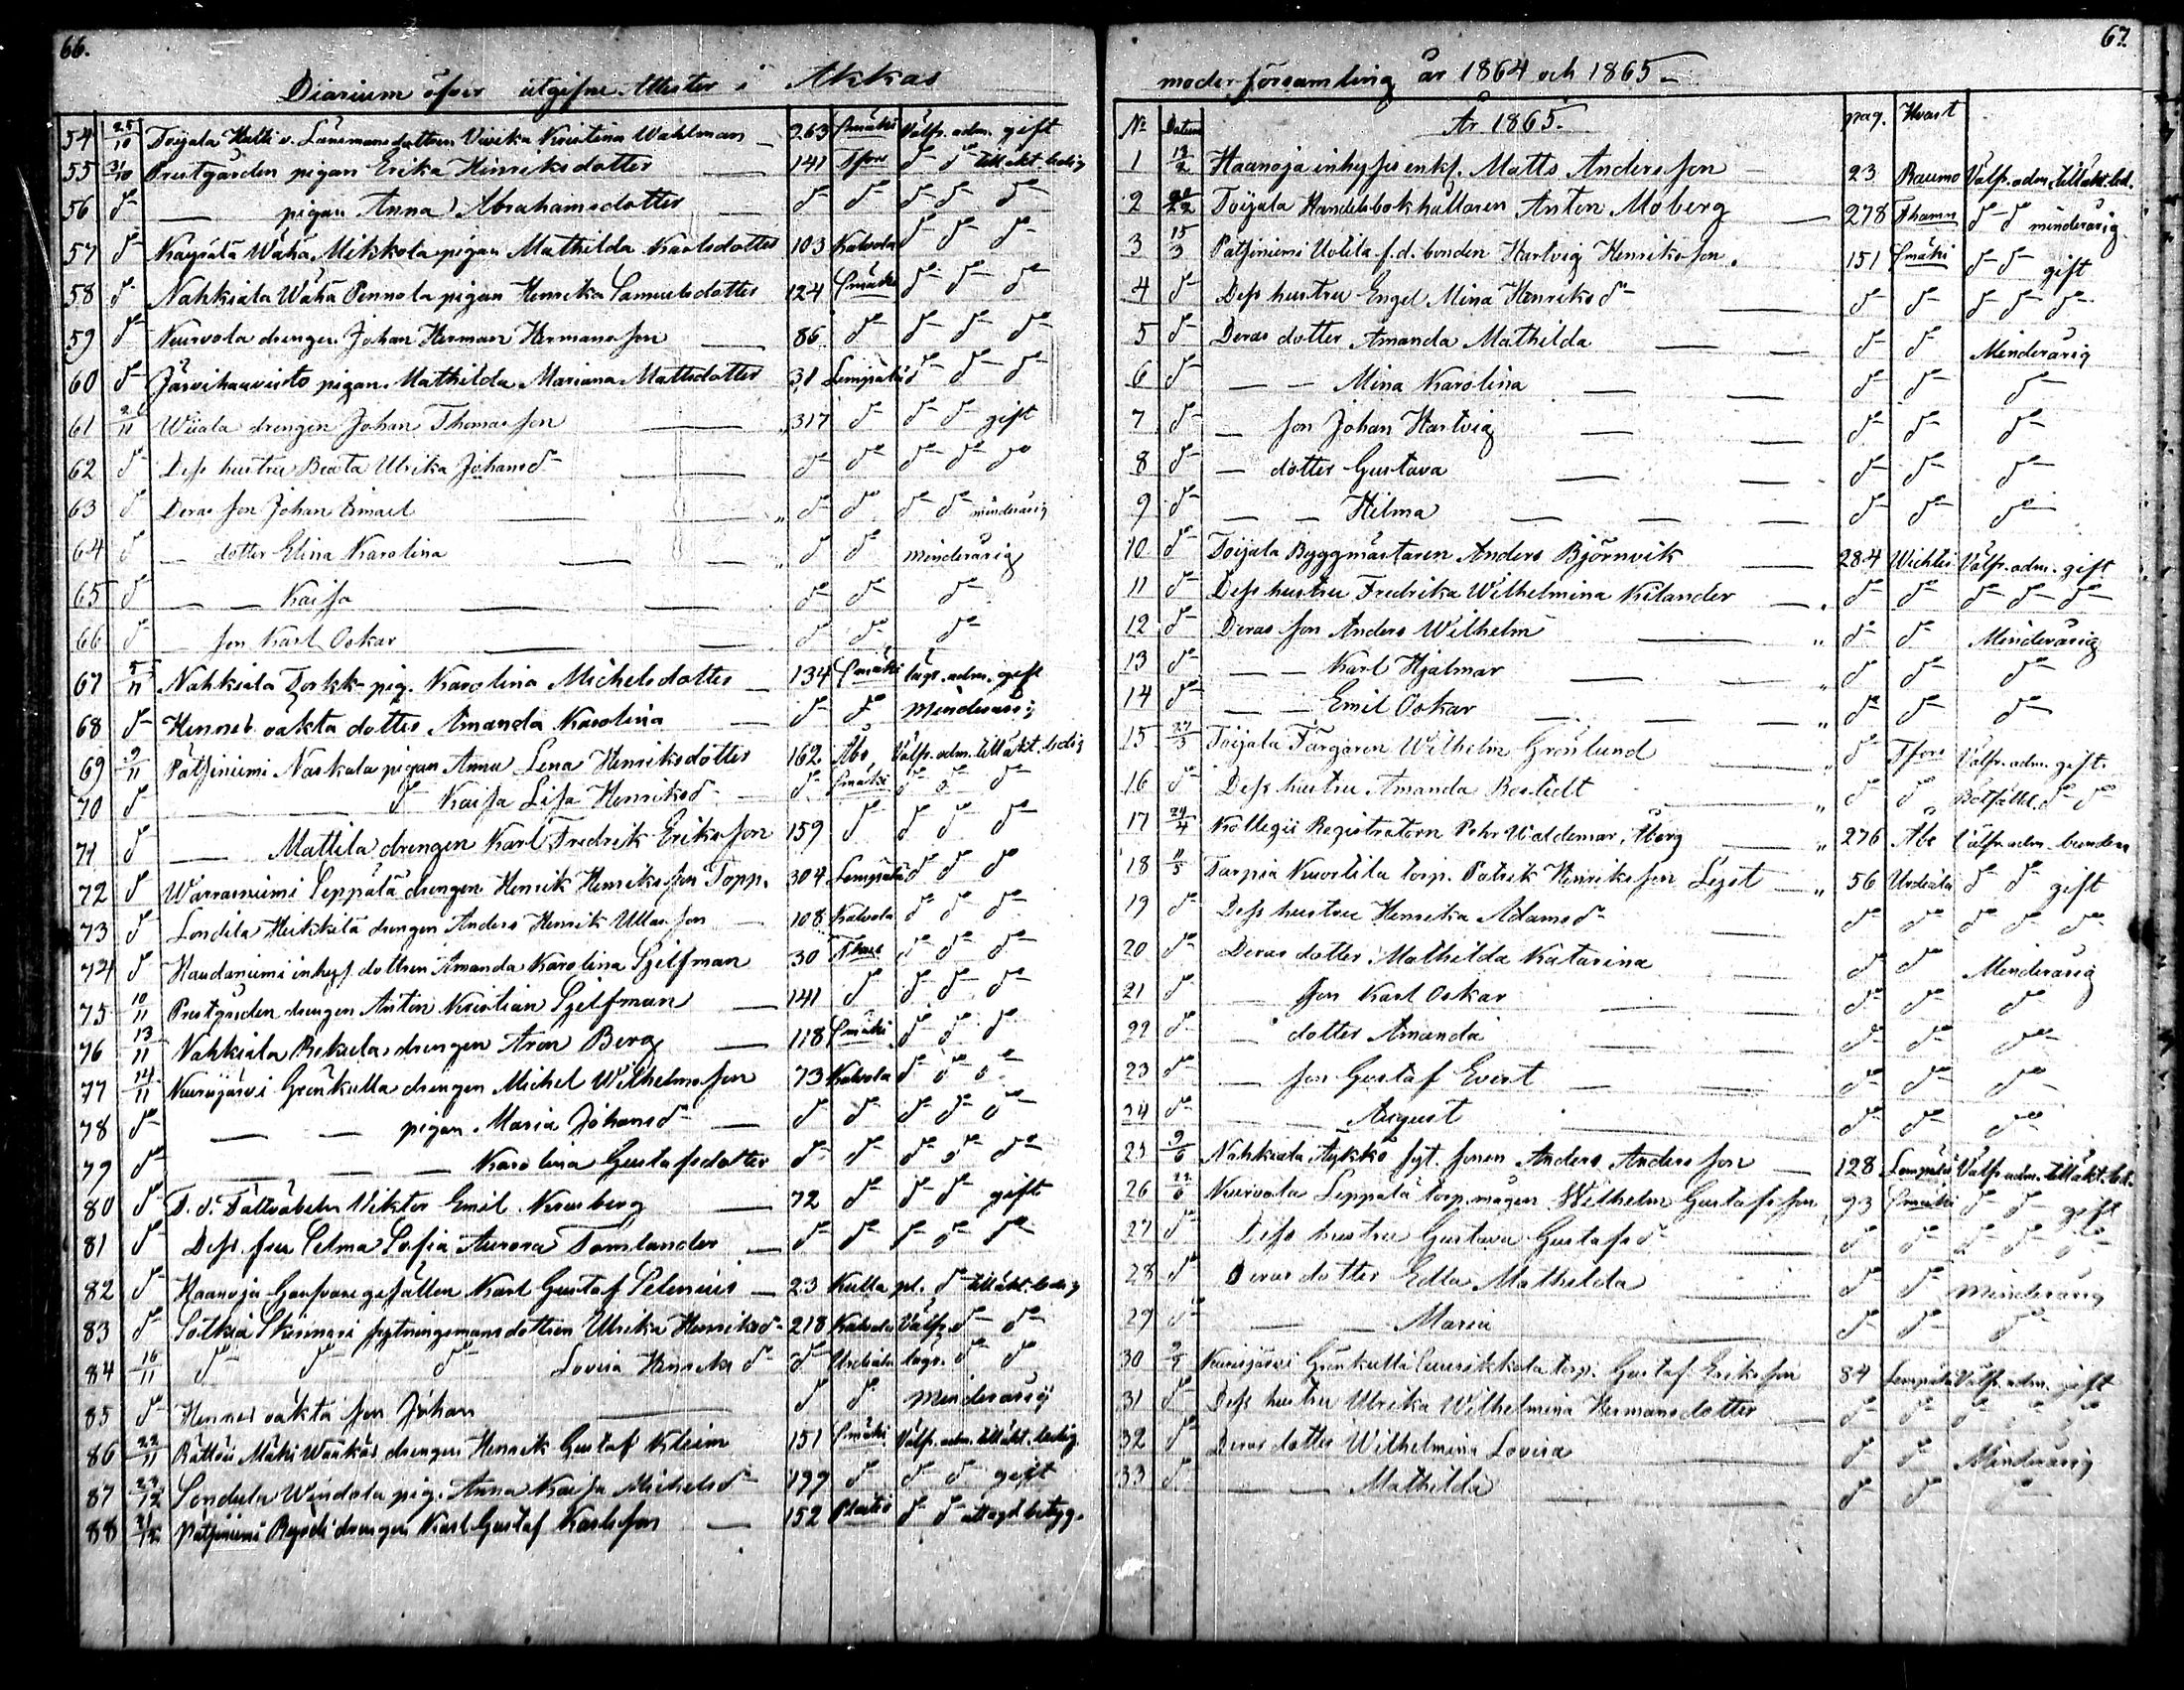 66.
Diarium öfver utgifne Attester i Akkas
54 25/10 Toijala Hälli v. Länsmans dottern Viveka Kristina Wahlman 263 Smäki Välfr. adm. gift
55 31/10 Prestgården pigan Erika Henriksdotter 141 Tfors d:o d:o till äkt. ledig
56 d:o — pigan Anna Abrahamsdotter d:o d:o d:o d:o d:o
57 d:o Wähä Mikkola pigan Mathilda Karlsdotter 103 Kalvola d:o d:o d:o
58 d:o Nahkiala Wähä Pennola pigan Henrika Samuelsdotter 124 Smäki d:o d:o d:o
59 d:o Kurvola drengen Johan Herman Hermansson 86 d:o d:o d:o d:o
60 d:o pigan Mathilda Mariana Mattsdotter 31 Lempälä d:o d:o d:o
61 2/11 Wiiala drengen Johan Thomasson 317 d:o d:o d:o gift
62 d:o Dess hustru Beata Ulrika Johansd:r d:o d:o d:o d:o d:o
63 d:o Deras son Johan Ismael d:o d:o d:o d:o minderårig
64 d:o — dotter Elina Karolina d:o d:o minderårig
65 d:o — — Kaisa d:o d:o d:o
66 d:o — son Karl Oskar d:o d:o d:o
67 5/11 Nahkiala pig. Karolina Michelsdotter 134 Smäki lagr. adm. gift
68 d:o Hennes oäkta dotter Amanda Karolina d:o d:o Minderårig
69 9/11 Pätsiniemi Naskala pigan Anna Lena Henriksdotter 162 Åbo Välfr. adm. till äkt. ledig
70 d:o — d:o Kaisa Lisa Henriksd:r d:o Smäki d:o d:o d:o
71 d:o — Mattila drengen Karl Fredrik Eriksson 159 d:o d:o d:o d:o
72 d:o Warrasniemi Seppälä drengen Henrik Henriksson Topp. 304 Lempälä d:o d:o d:o
73 d:o Heikkilä drengen Anders Henrik 108 Kalvola d:o d:o d:o
74 d:o Haudaniemi inhys. dottren Amanda Karolina Sjelfman 30 d:o d:o d:o
75 10/11 Prestgården drengen Anton Kristian Sjelfman 141 d:o d:o d:o d:o
76 13/11 Nahkiala Rekula drengen Aron Berg 118 Smäki d:o d:o d:o
77 14/11 Kurisjärvi Grönkulla drengen Michel Wilhelmsson 73 Kalvola d:o d:o d:o
78 d:o — — pigan Maria Johansd:r d:o d:o d:o d:o d:o
79 d:o — — — Karolina Gustafsdotter d:o d:o d:o d:o d:o
80 d:o F. d. Fältväbeln Viktor Emil 72 d:o d:o d:o gift
81 d:o Dess fru Selma Sofia Aurora Tamlander d:o d:o d:o d:o d:o
82 d:o Haanoja Garfvare gesällen Karl Gustaf Selenius 23 Kulla pl. d:o till äkt. ledig
83 d:o Sotkia Skinnari sytningsmans dottren Ulrika Henriksd:r 218 Kalvola Välfr. d:o d:o
84 16/11 d:o d:o d:o Lovisa Henriks d:r d:o Urdiala lagr. d:o d:o
85 d:o Hennes oäkta son Johan d:o d:o minderårig
86 22/11 Rättöis Mäki Waakas drengen Henrik Gustaf Kleim 151 Smäki Välfr. adm. till äkt. ledig
87 27/12 Sondula Windala pig. Anna Kaisa Michelsd:r 199 d:o d:o d:o gift
88 31/12 Pätsiniemi drengen Karl Gustaf Karlsson 152 d:o d:o attagit betyg.
67.
moderförsamling år 1864 och 1865
№ Datum År 1865. pag. Hvart
1 13/2 Haanoja inhyses enkl. Matts Andersson 23 Raumo Välfr. adm. till äkt. led.
2 22/2 Toijala Handelsbokhållaren Anton Moberg 278 Fhamn d:o d:o minderårig
3 15/3 Patsiniemi Uotila f.d. bonden Hartvig Henriksson 151 Smäki d:o d:o gift
4 d:o Dess hustru Engel Mina Henriks d:r d:o d:o d:o d:o d:o
5 d:o Deras dotter Amanda Mathilda d:o d:o Minderårig
6 d:o — — Mina Karolina d:o d:o d:o
7 d:o — son Johan Hartvig d:o d:o d:o
8 d:o — dotter Gustava d:o d:o d:o
9 d:o — — Hilma d:o d:o d:o
10 d:o Toijala Byggmästaren Anders Björnvik 284 Wichtis Välfr. adm. gift
11 d:o Dess hustru Fredrika Wilhelmina Kilander d:o d:o d:o d:o d:o
12 d:o Deras son Anders Wilhelm d:o d:o Minderårig
13 d:o — — Karl Hjalmar d:o d:o d:o
14 d:o — — Emil Oskar d:o d:o d:o
15 27/3 Toijala Färgaren Wilhelm Grönlund d:o Tfors Välfr. adm. gift.
16 d:o Dess hustru Amanda Bostedt d:o d:o Botfälld d:o d:o
17 24/4 Kollegii Registratorn Pehr Waldemar Åberg 276 Åbo Välfr. adm. bunden
18 11/5 Tarpia Kuortila torp. Patrik Henriksson Segst 56 Urdiala d:o d:o gift
19 d:o Dess hustru Henrika Adamsd:r d:o d:o d:o d:o d:o
20 d:o Deras dotter Mathilda Katarina d:o d:o Minderårig
21 d:o — son Karl Oskar d:o d:o d:o
22 d:o — dotter Amanda d:o d:o d:o
23 d:o — son Gustaf Evert d:o d:o d:o
24 d:o — — August d:o d:o d:o
25 9/6 Nahkiala Äykkö syt. sonen Anders Andersson 128 Lempälä Välfr. adm. till äkt. led.
26 22/6 Kurvola Seppälä torp. mågen Wilhelm Gustafsson 93 Smäki d:o d:o gift
27 d:o Dess hustru Gustava Gustafsd:r d:o d:o d:o d:o d:o
28 d:o Deras dotter Edla Mathilda d:o d:o minderårig
29 d:o — — Maria d:o d:o d:o
30 Kurisjärvi Grönkulla torp. Gustaf Eriksson 84 Lempälä Välfr. adm. gift
31 d:o Dess hustru Ulrika Wilhelmina Hermansdotter d:o d:o d:o d:o d:o
32 d:o Deras dotter Wilhelmina Lovisa d:o d:o Minderårig
33 d:o — — Mathilda d:o d:o d:o